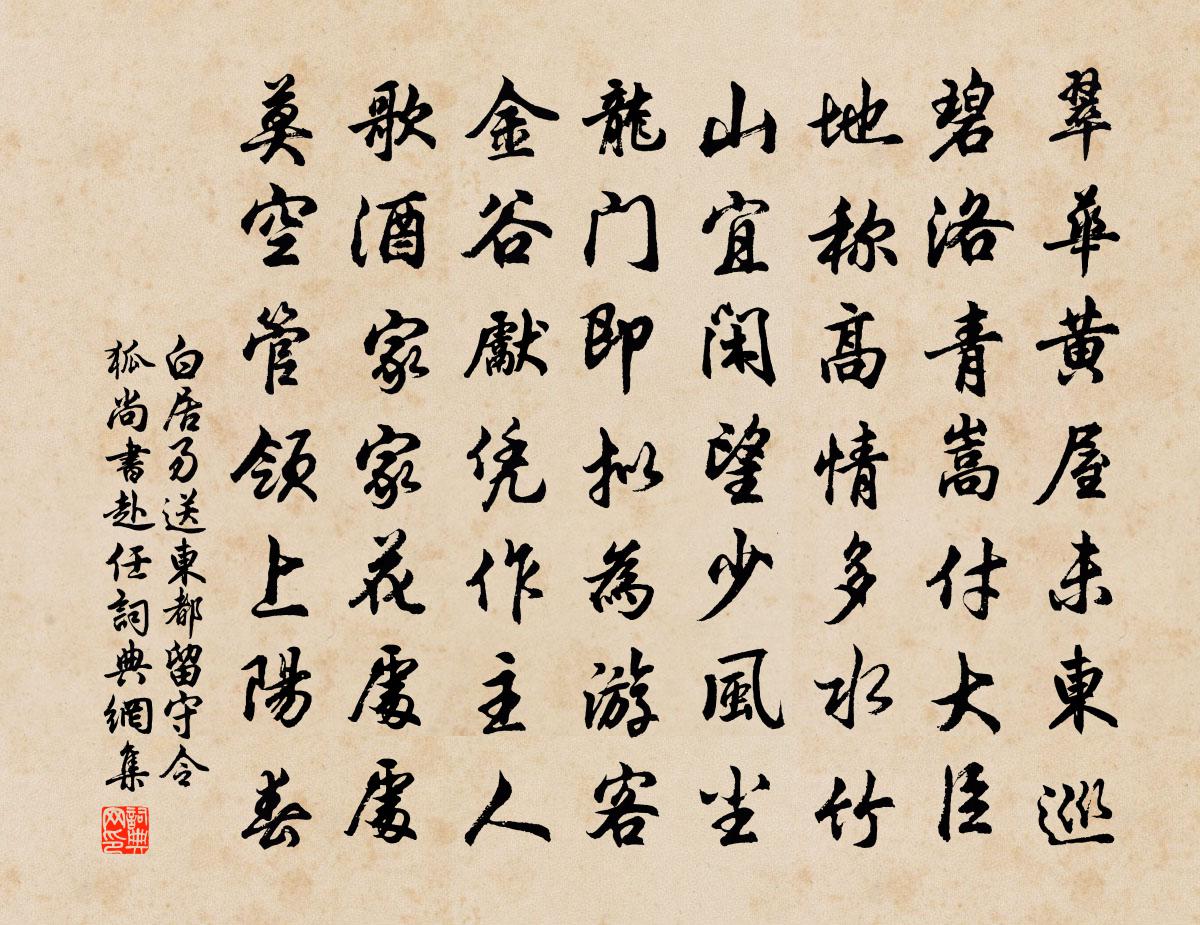 翠華黄屋未東巡
碧洛青嵩付大臣
地称高情多水竹
山宜閑望少風塵
龍门即拟為游客
金谷獻凭作主人
歌酒家家花處處
莫空管領上陽春
白居易送東都留守令
狐尚書赴任詞典網集
詞典
网印